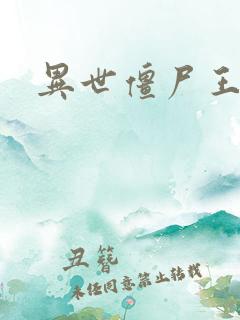 異世僵尸王
丑簪
未经同意禁止转载